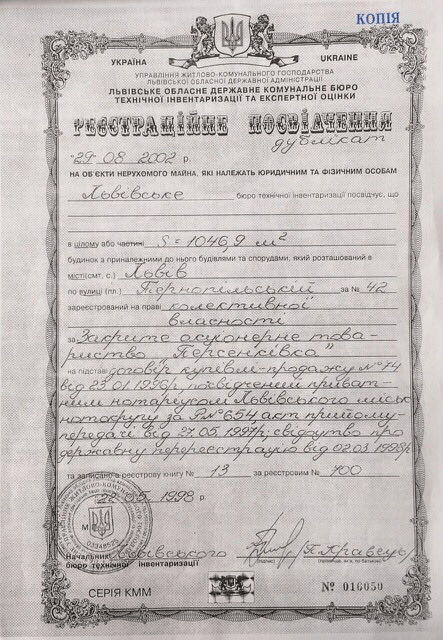 КОПІЯ
УКРАЇНА UKRAINE
УПРАВЛІННЯ ЖИТЛОВО-КОМУНАЛЬНОГО ГОСПОДАРСТВА
ЛЬВІВСЬКОЇ ОБЛАСНОЇ ДЕРЖАВНОЇ АДМІНІСТРАЦІЇ
ЛЬВІВСЬКЕ ОБЛАСНЕ ДЕРЖАВНЕ КОМУНАЛЬНЕ БЮРО
ТЕХНІЧНОЇ ІНВЕНТАРИЗАЦІЇ ТА ЕКСПЕРТНОЇ ОЦІНКИ
РЕЄСТРАЦІЙНЕ ПОСВІДЧЕННЯ
дублікат
"29" 08 2002 р.
НА ОБ'ЄКТИ НЕРУХОМОГО МАЙНА, ЯКІ НАЛЕЖАТЬ ЮРИДИЧНИМ ТА ФІЗИЧНИМ ОСОБАМ
Львівське бюро технічної інвентаризації посвідчує, що
в цілому або частині S = 1046,9 м²
будинок з приналежними до нього будівлями та спорудами, який розташований в
місті(смт, с.) Львів
по вулиці (пл.) Тернопільській за № 42
зареєстрований на праві колективної
власності
за Закрите акціонерне това-
риство "Персенківка"
на підставі договір купівлі-продажу № 74
від 23.01.1996р. посвідчений приват-
ним нотаріусом Львівського міськ
нотокругу за Р№ 654 акт прийому-
передачі від 27.05 1997р; свідоцтво про
державну перереєстрацію від 02.03 1998р
та записано в реєстрову книгу № 13 за реєстровим № 700
22.05. 1998 р.
М
Начальник Львівського
бюро технічної інвентаризації (підпис) (прізвище, ім'я, по батькові)
СЕРІЯ КММ № 016050